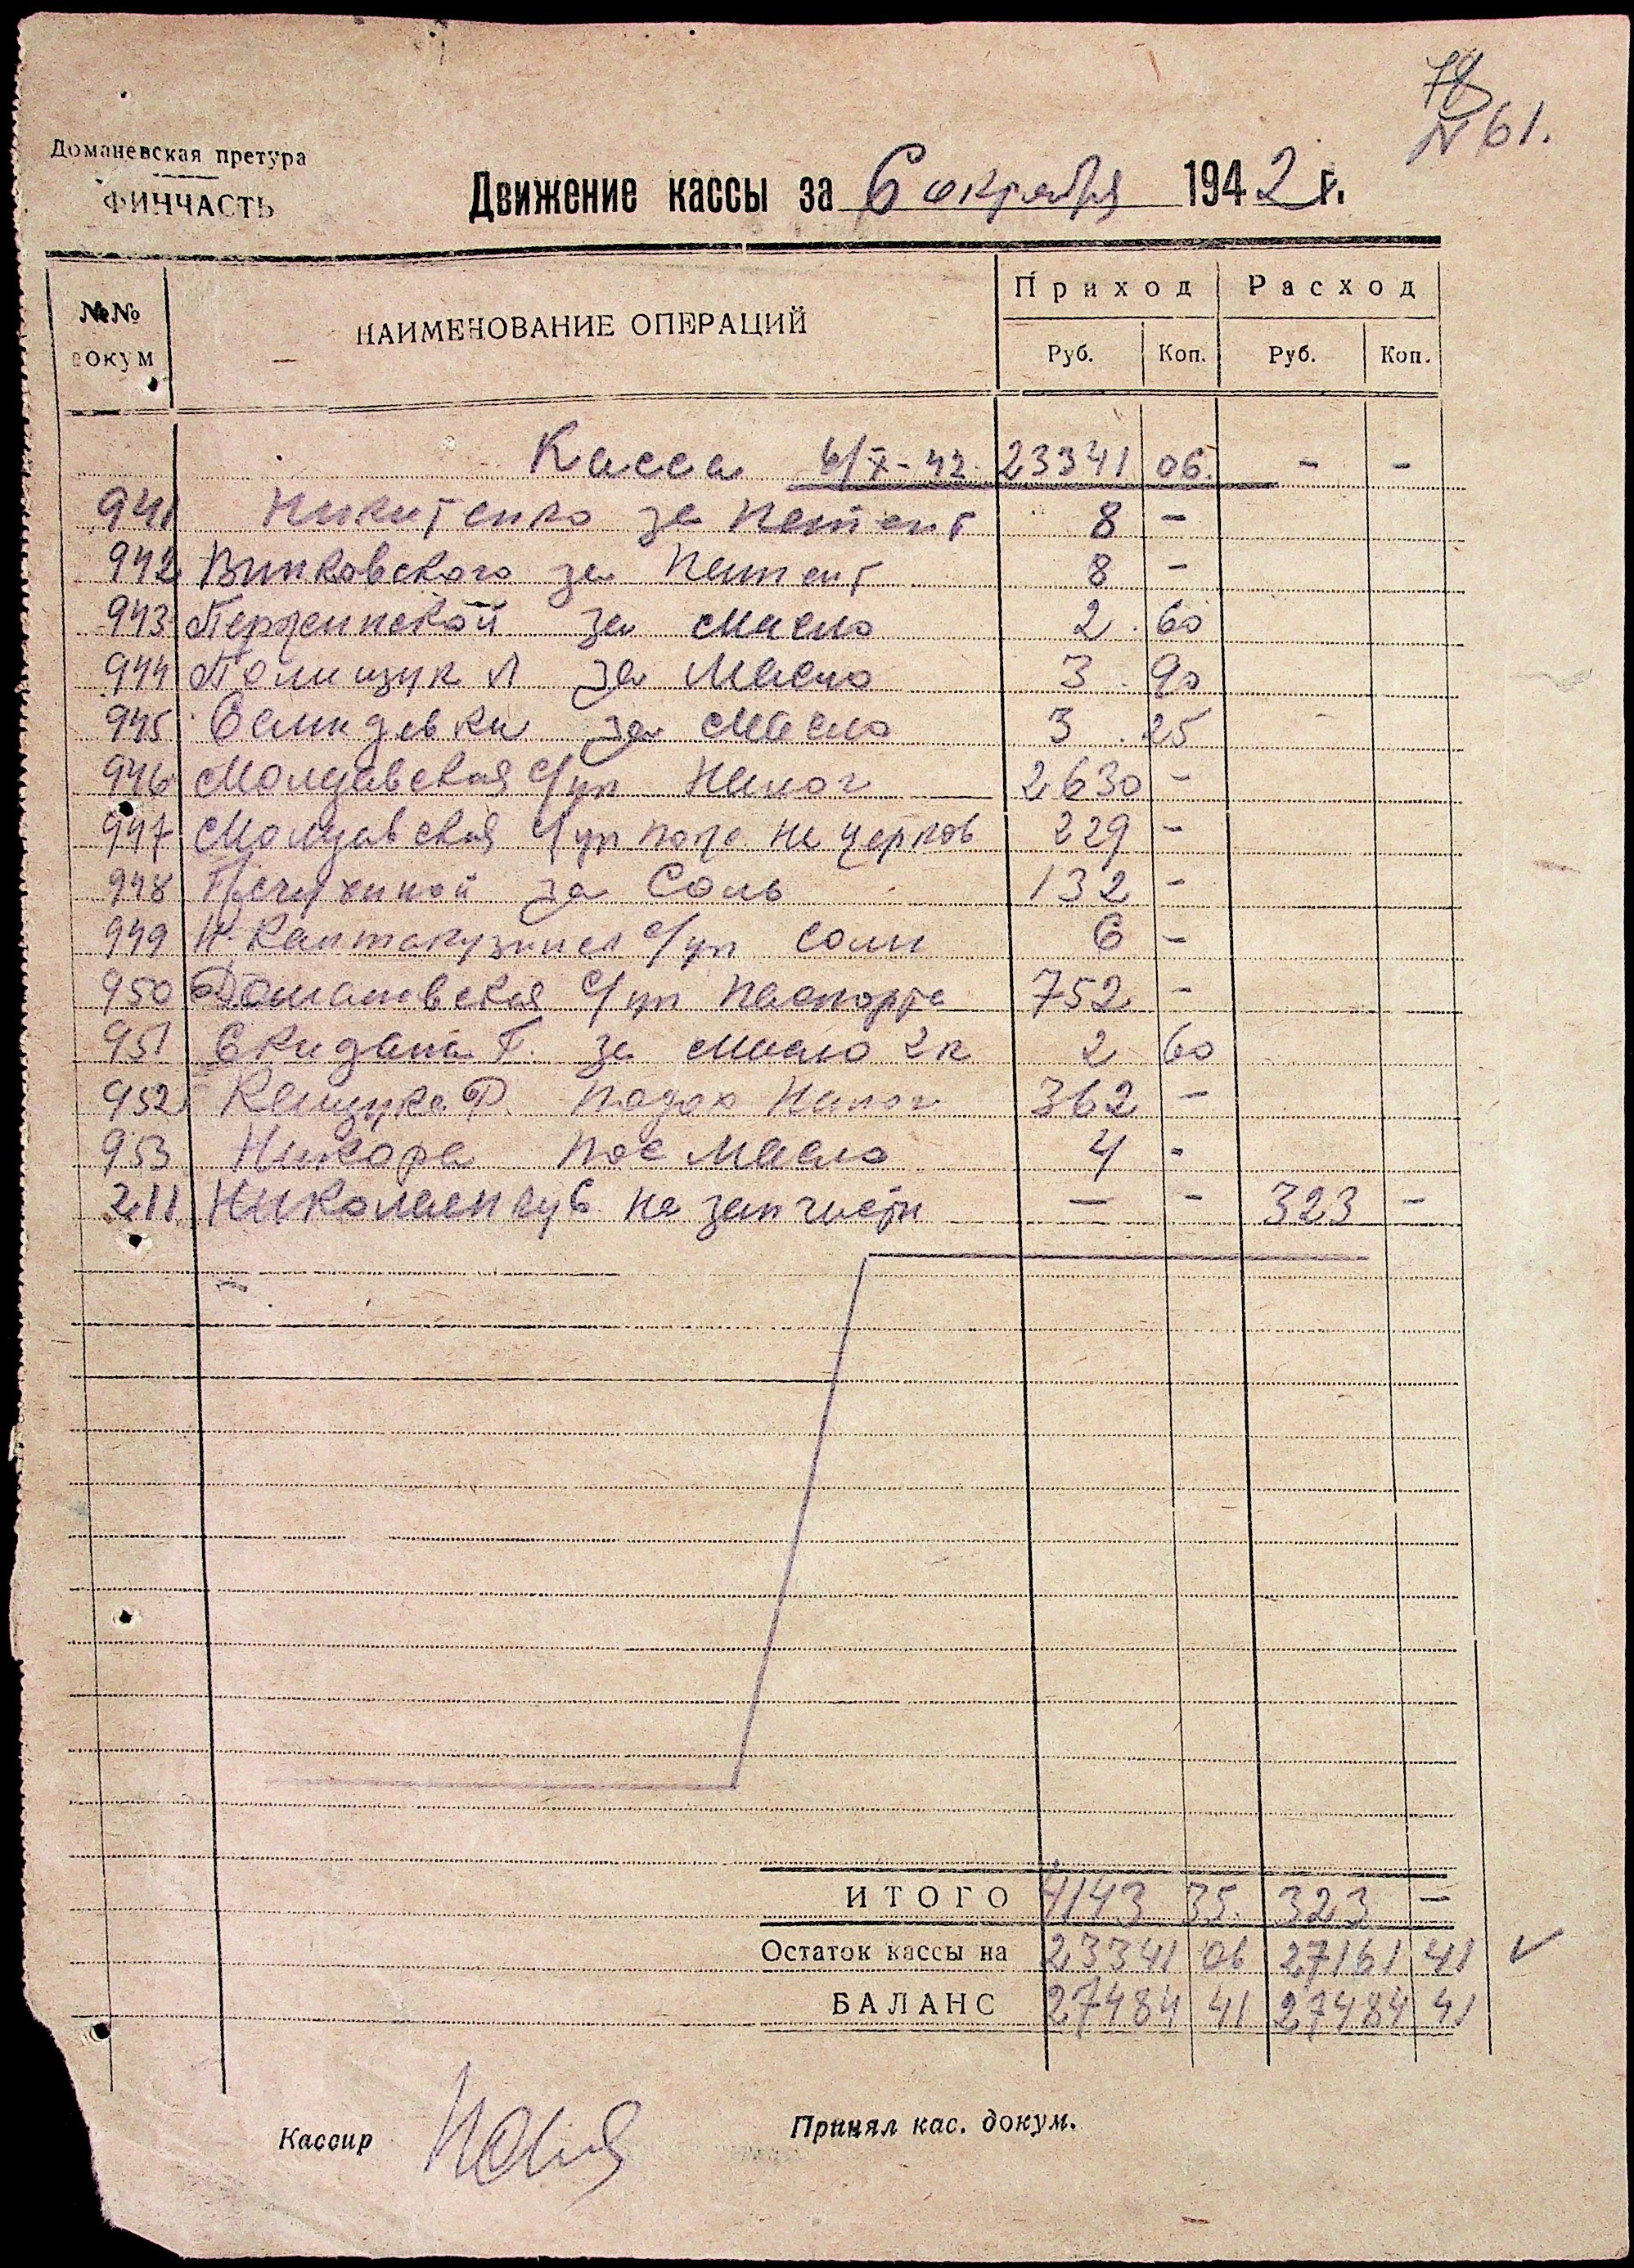 78
N 61.
Доманевская претура
ФИНЧАСТЬ
Движение кассы за 6 октября 1942 г.
№№ докум НАИМЕНОВАНИЕ ОПЕРАЦИЙ Приход Расход
Руб. Коп. Руб. Коп.
Касса 6/X-42 23341 06. - -
941 Никитенко за патент 8 -
942 Винковского за патент 8 -
943 за масло 2.60
944 Полищук А за масло 3.90
945 за масло 3.25
946 Молдавская с/уп налог 2630 -
947 Молдавская с/уп на церков 229 -
948 за соль 132 -
949 Н. Кантакузинск с/уп соли 6 -
950 Доманевская с/уп паспорта 752 -
951 Скидана Г. за масло 2к 2 60
952 Кащука Ф. подох налог 362 -
953 Никора пос масло 4 -
211 на запчасти — - 323 -
ИТОГО 4143 35. 323 —
Остаток кассы на 23341 06 27161 41 ✓
БАЛАНС 27484 41 27484 41
Кассир
Принял кас. докум.